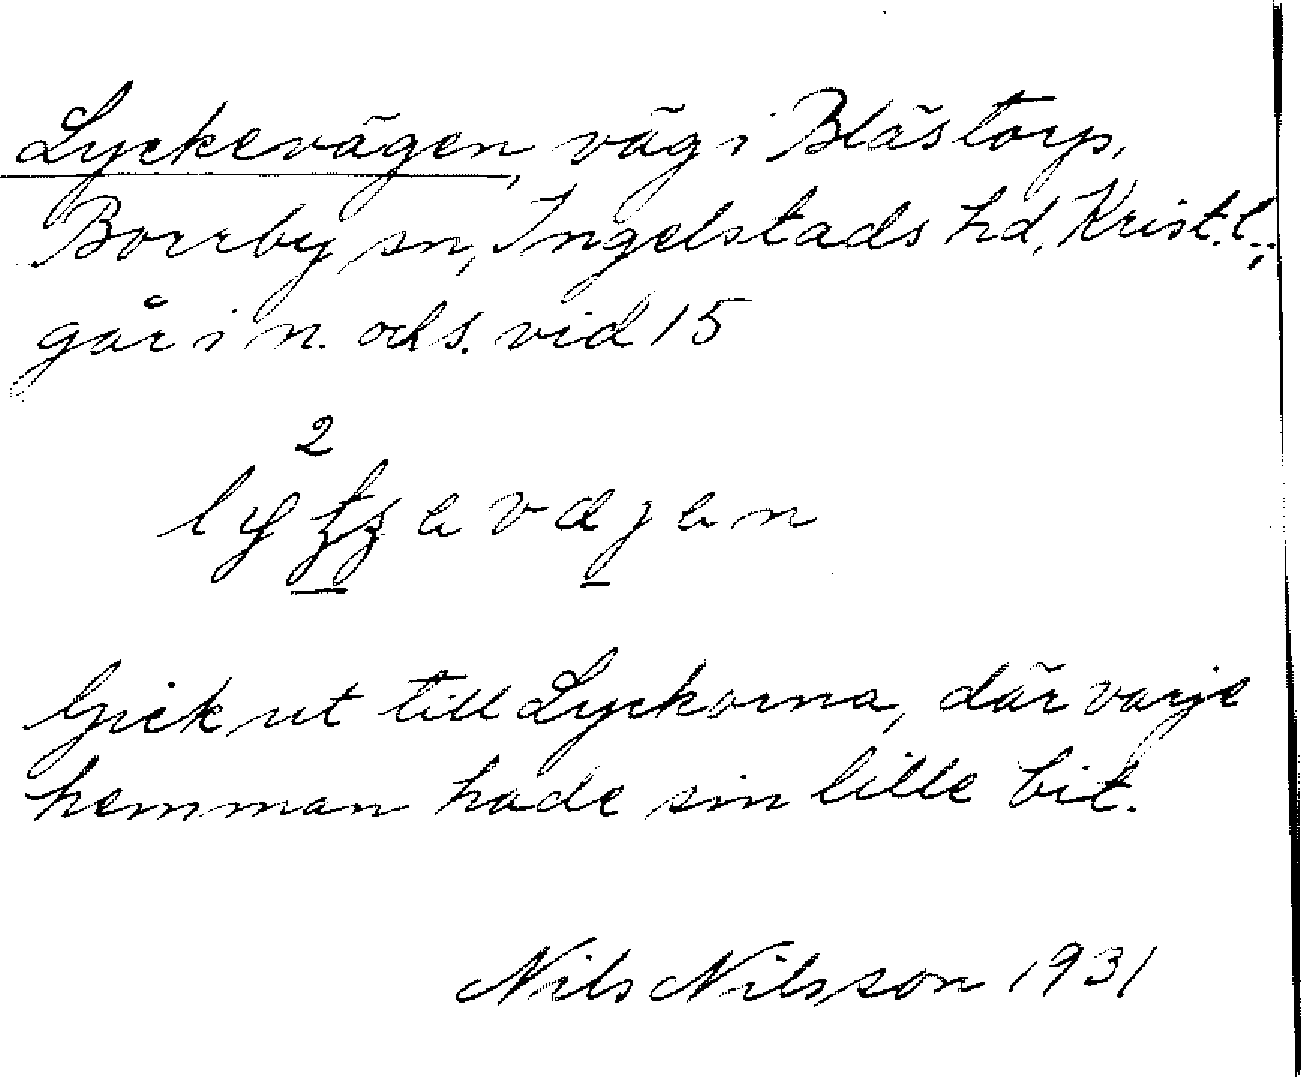 Lyckevägen, väg i Blästorp,
Borrby sn, Ingelstads hd, Krist. l.;
går i n. och s. vid 15
2
Gick ut till Lyckorna, där varje
hemman hade sin lille bit.
Nils Nilsson 1931